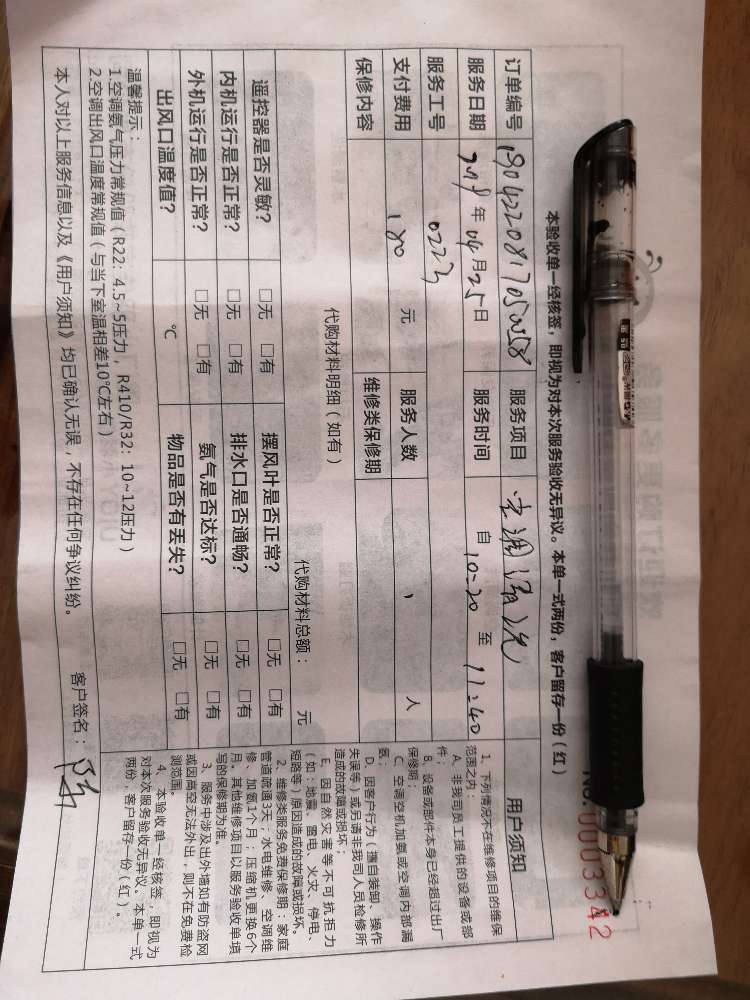 本验收单一经核签，即视为对本次服务验收无异议。本单一式两份，客户留存一份（红）
No.0003342
订单编号 服务项目 空调清洗
服务日期 年04月25日 服务时间 自10:20至11:40
服务工号 0223
支付费用 180 元 服务人数 1 人
保修内容 维修类保修期
代购材料明细（如有） 代购材料总额： 元
遥控器是否灵敏？ □无 □有 摆风叶是否正常？ □无 □有
内机运行是否正常？ □无 □有 排水口是否通畅？ □无 □有
外机运行是否正常？ □无 □有 氨气是否达标？ □无 □有
出风口温度值？ ℃ 物品是否有丢失？ □无 □有
温馨提示：
1.空调氨气压力常规值（R22：4.5~5压力，R410/R32：10~12压力）
2.空调出风口温度常规值（与当下室温相差10℃左右）
本人对以上服务信息以及《用户须知》均已确认无误，不存在任何争议纠纷。 客户签名：
用户须知
1、下列情况不在维修项目的维保
范围之内：
A、非我司员工提供的设备或部
件；
B、设备或部件本身已经超过出厂
保修期；
C、空调空机加氨或空调内部漏
氨；
D、因客户行为（擅自装卸、操作
失误等）或另请非我司人员检修所
造成的故障或损坏；
E、因自然灾害等不可抗拒力
（如：地震、雷电、火灾、停电、
短路等）原因造成的故障或损坏。
2、维修类服务免费保修期：家庭
管道疏通3天；水电维修、空调维
修、加氨1个月；压缩机更换6个
月。其他维修项目以服务验收单填
写的保修期为准。
3、服务中涉及出外墙如有防盗网
或因高空无法外出，则不在免费检
测范围。
4、本验收单一经核签，即视为
对本次服务验收无异议。本单一式
两份，客户留存一份（红）。